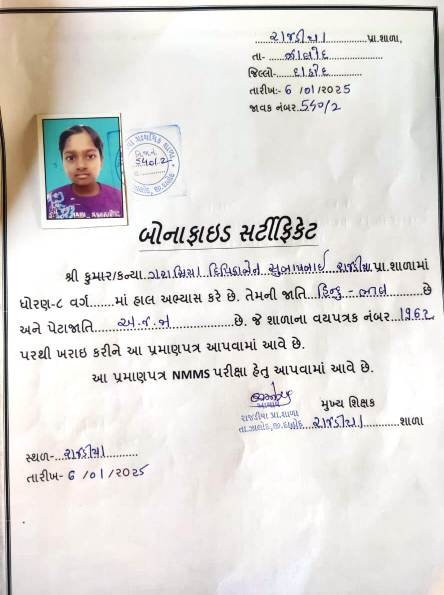 રાજડીયા પ્રા.શાળા,
તા- ઝાલોદ
જિલ્લો- દાહોદ
તારીખ:- 6 /01 /2025
જાવક નંબર 540/2
બોનાફાઇડ સર્ટીફિકેટ
શ્રી કુમાર/કન્યા ગરાસિયા દિપિકાબેન સુભાષભાઈ રાજડીયા પ્રા.શાળામાં
ધોરણ-૮ વર્ગ......માં હાલ અભ્યાસ કરે છે. તેમની જાતિ હિન્દુ - ભીલ છે
અને પેટાજાતિ અ.જ.જા છે. જે શાળાના વયપત્રક નંબર 1962
પરથી ખરાઇ કરીને આ પ્રમાણપત્ર આપવામાં આવે છે.
આ પ્રમાણપત્ર NMMS પરીક્ષા હેતુ આપવામાં આવે છે.
આચાર્ય
મુખ્ય શિક્ષક
રાજડીયા પ્રા.શાળા
તા.ઝાલોદ, જી.દાહોદ રાજડીયા શાળા
સ્થળ- રાજડીયા
તારીખ- 6 /01 /2025